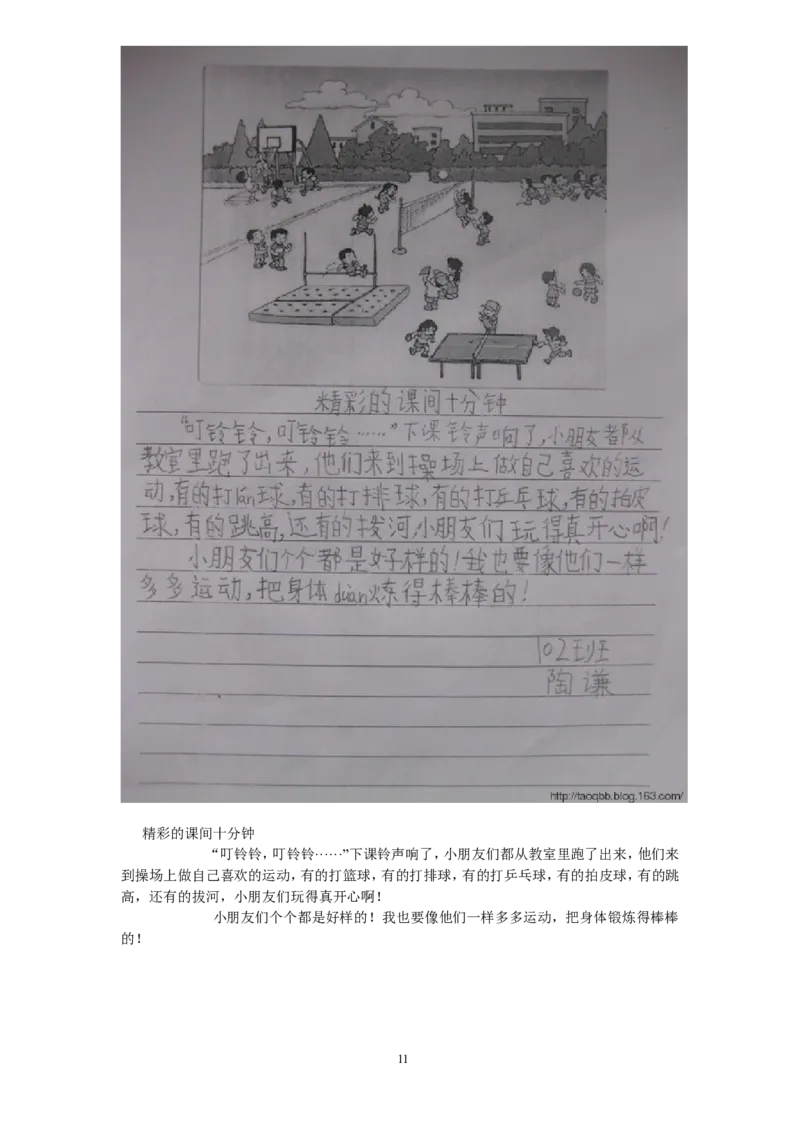 精彩的课间十分钟
“叮铃铃,叮铃铃……”下课铃声响了,小朋友都从
教室里跑了出来,他们来到操场上做自己喜欢的运
动,有的打lán球,有的打排球,有的打乒乓球,有的拍皮
球,有的跳高,还有的拨河,小朋友们玩得真开心啊!
小朋友们个个都是好样的!我也要像他们一样
多多运动,把身体duàn炼得棒棒的!
102班
陶谦
http://taoqbb.blog.163.com/
精彩的课间十分钟
“叮铃铃，叮铃铃……”下课铃声响了，小朋友们都从教室里跑了出来，他们来
到操场上做自己喜欢的运动，有的打篮球，有的打排球，有的打乒乓球，有的拍皮球，有的跳
高，还有的拔河，小朋友们玩得真开心啊！
小朋友们个个都是好样的！我也要像他们一样多多运动，把身体锻炼得棒棒
的！
11